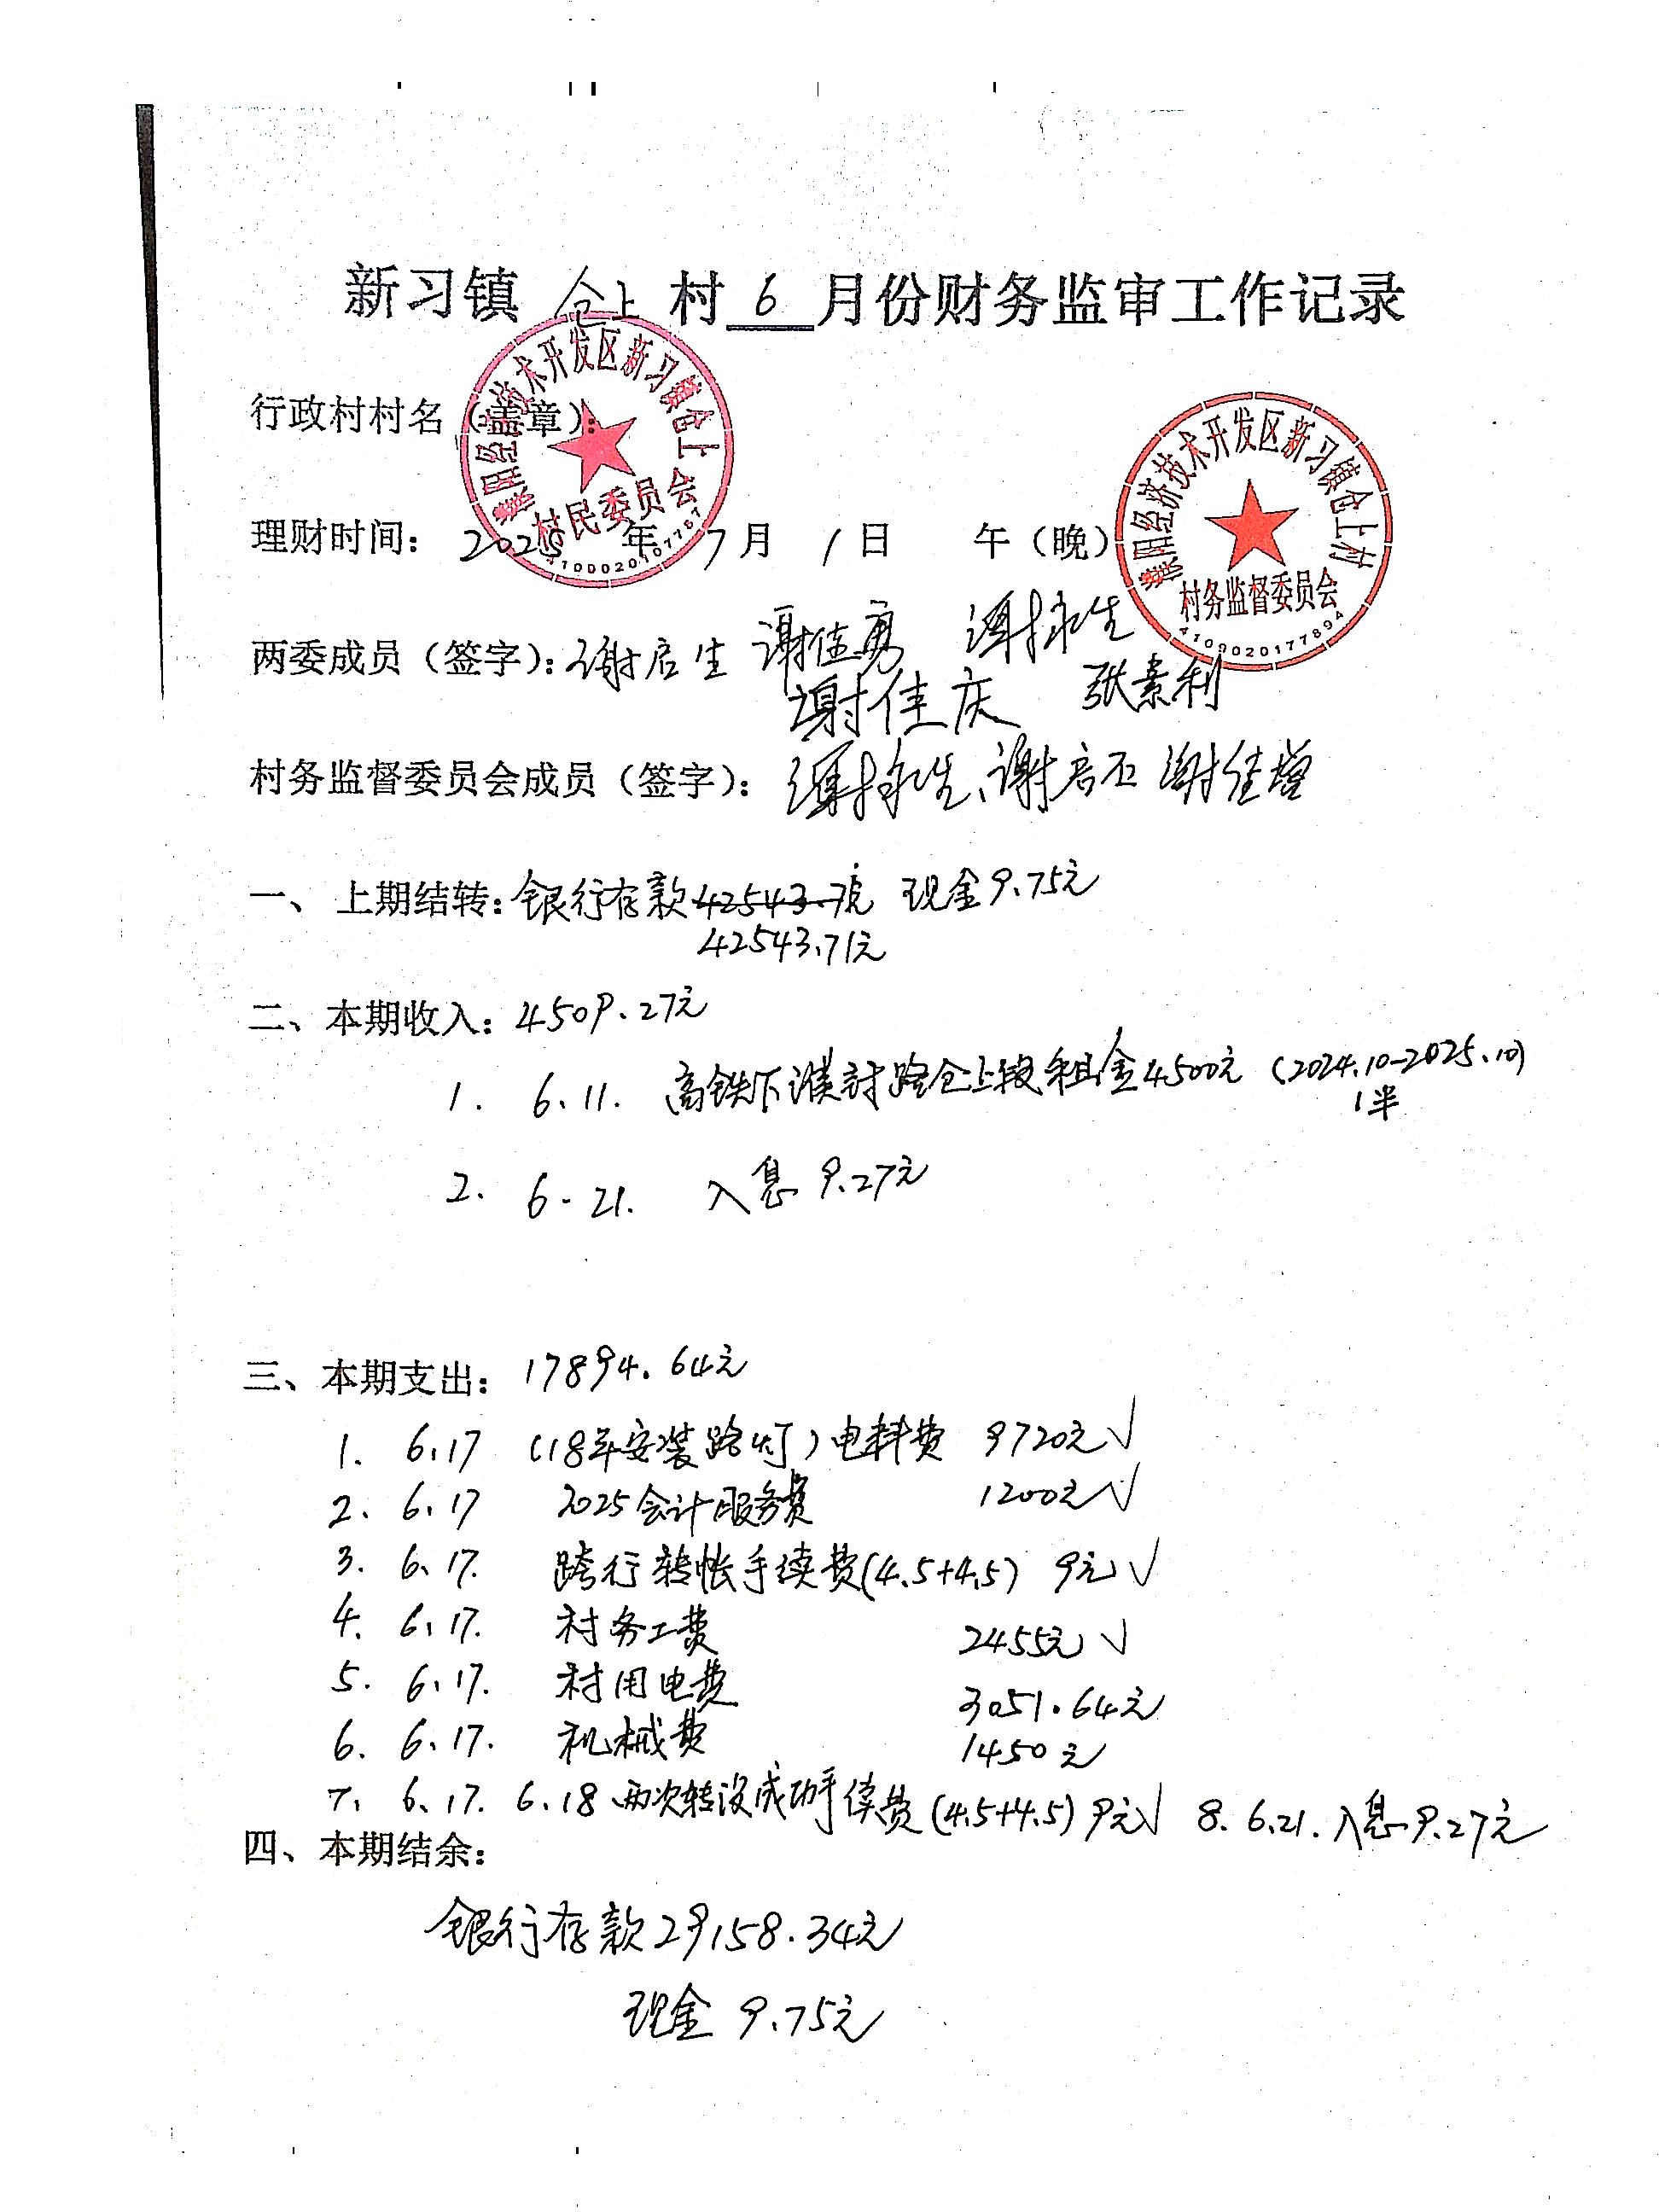 新习镇 仓上 村 6 月份财务监审工作记录
行政村村名（盖章）：
濮阳经济技术开发区新习镇仓上
村民委员会
4100020107767
理财时间： 2025 年 7 月 1 日 午（晚）
濮阳经济技术开发区新习镇仓上村
村务监督委员会
4100020177894
两委成员（签字）：谢启生 谢佳勇 谭择生
谢佳庆 张素利
村务监督委员会成员（签字）： 谭择生、谢启石 谢佳莹
一、 上期结转：银行存款42543.7元 现金9.75元
42543.71元
二、本期收入：4509.27元
1. 6.11. 高铁下濮封路仓上段租金4500元（2024.10-2025.10）
1半
2. 6-21. 入息 9.27元
三、本期支出： 17894.64元
1. 6.17 （18年安装路灯）电料费 9720元√
2. 6.17 2025会计服务费 1200元√
3. 6.17. 跨行转帐手续费(4.5+4.5) 9元√
4. 6.17. 村务工费 2455元√
5. 6.17. 村用电费 3051.64元
6. 6.17. 机械费 1450元
7. 6.17. 6.18两次转没成功手续费(4.5+4.5)9元√ 8. 6.21.入息9.27元
四、本期结余：
银行存款29158.34元
现金 9.75元